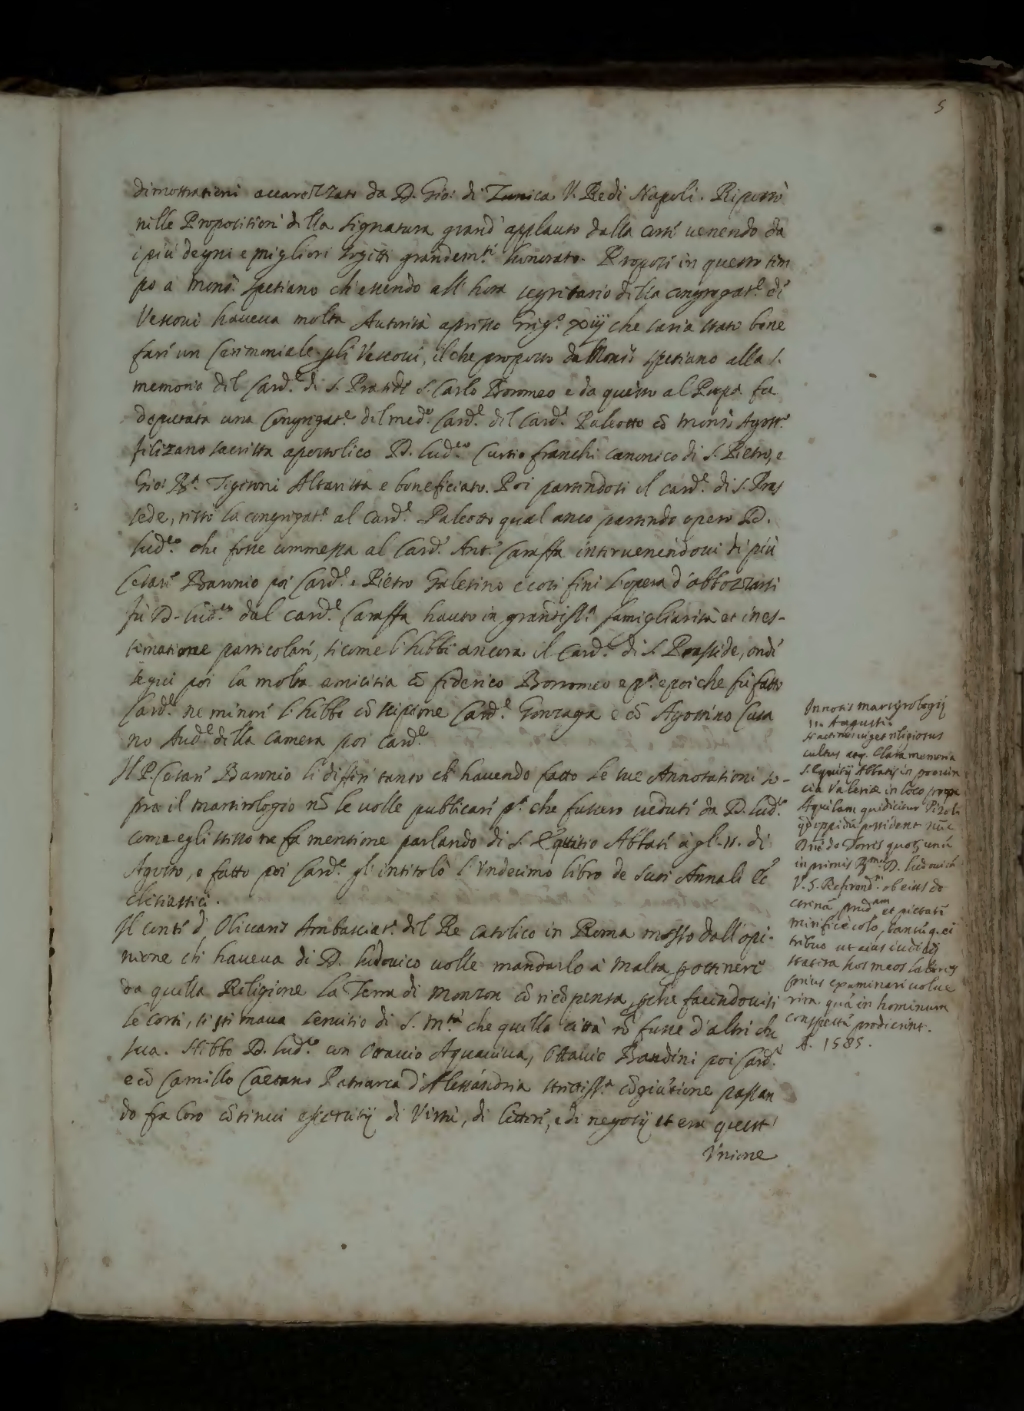 5
dimostrationi accarezzato da D. Gio: di Zunica V. Re di Napoli. Riportò
nelle Propositioni della Signatura grand' applauso dalla Corte venendo da
i più degni e migliori sogetti grandem.te honorato. Propose in questo tem
po a Mons.r Spetiano ch'essendo all'hora segretario della Congregat.e de
Vescovi haveva molta Autorità apresso Greg.o xiij che saria stato bene
fare un Cerimoniale p gli Vescovi, il che proposto da Mons.r Spetiano alla s.
memoria del Card.l di S. Prasede S. Carlo Boromeo e da questo al Papa fu
deputata una Congregat.e del med.o Card.l del Card.l Paleotto cõ Mons.r Agost.o
filizano sacrista apostolico D. Lud.co Curtio franchi canonico di S. Pietro, e
Gio: B.a Tigeroni Altarista e beneficiato. Poi partendosi il card.l di S. Pras
sede, restò la congregat.e al Card.l Paleotto qual anco partendo operò D.
Lud.co che fosse commessa al Card.l Ant.o Caraffa intervenendovi di più
Cesare Baronio poi Card.l e Pietro Galesino e così finì l'opera d'abbozzarsi
fù D. Lud.co dal card.l Caraffa havuto in grandiss.a famigliarità et in es-
tematione particolare, sicome l'hebbe ancora il Card.l di S. Prasside, onde
seguì poi la molta amicitia cõ federico Borromeo e p.a e poi che fù fatto
Card.l ne minore l'hebbe cõ scipione Card.l Gonzaga e cõ Agostino Cusa
no Aud.e della Camera poi Card.l
Il P. Cesare Baronio li differì tanto ch' havendo fatto le sue Annotationi so-
pra il martirologio nõ le volle publicare p.a che fussero vedute da D. Lud.co
come egli stesso ne fa mentione parlando di S. Equitio Abbate a gl' 11. di
Agosto, e fatto poi Card.l gl'intitolò l'Undecimo libro de suoi Annali Ec
clesiastici.
Il conte d'Olivares Ambasciat.e del Re catolico in Roma mosso dall'opi-
nione ch' haveva di D. Ludovico volle mandarlo a Malta p ottenere
da quella Religione la Terra di Monzon cõ ricõpensa, p che facendovisi
le corti, si stimava servitio di S. M.tà che quella città nõ fusse d'altri che
sua. Hebbe D. Lud.co con Ottavio Aquaviva, Ottavio Bandini poi Card.i
e cõ Camillo Caetano Patriarca d'Alessandria strettiss.a cõgiuntione passan
do fra loro cõtinui esercitij di Virtù, di lettere, e di negotij et era quest'
Unione
Annotais martyrologij
11. Augustis
cultus atq. Clara memoria
S. Equitij Abbatis in provin
cia Valeriæ in loco prope
Aquilam qui dicitur
oppidũ possident nũc
de Torres quorũ unũ
in primis R.mũ D. Ludovicũ
V. S. Referend.m ob eius do
ctrinã prud.am et pietatẽ
mirificè colo, tantũ q. ei
tribuo ut eius iudicio
hos meos labores
prius examinari volue
rim quã in hominum
conspectũ prodierint.
A. 1585.